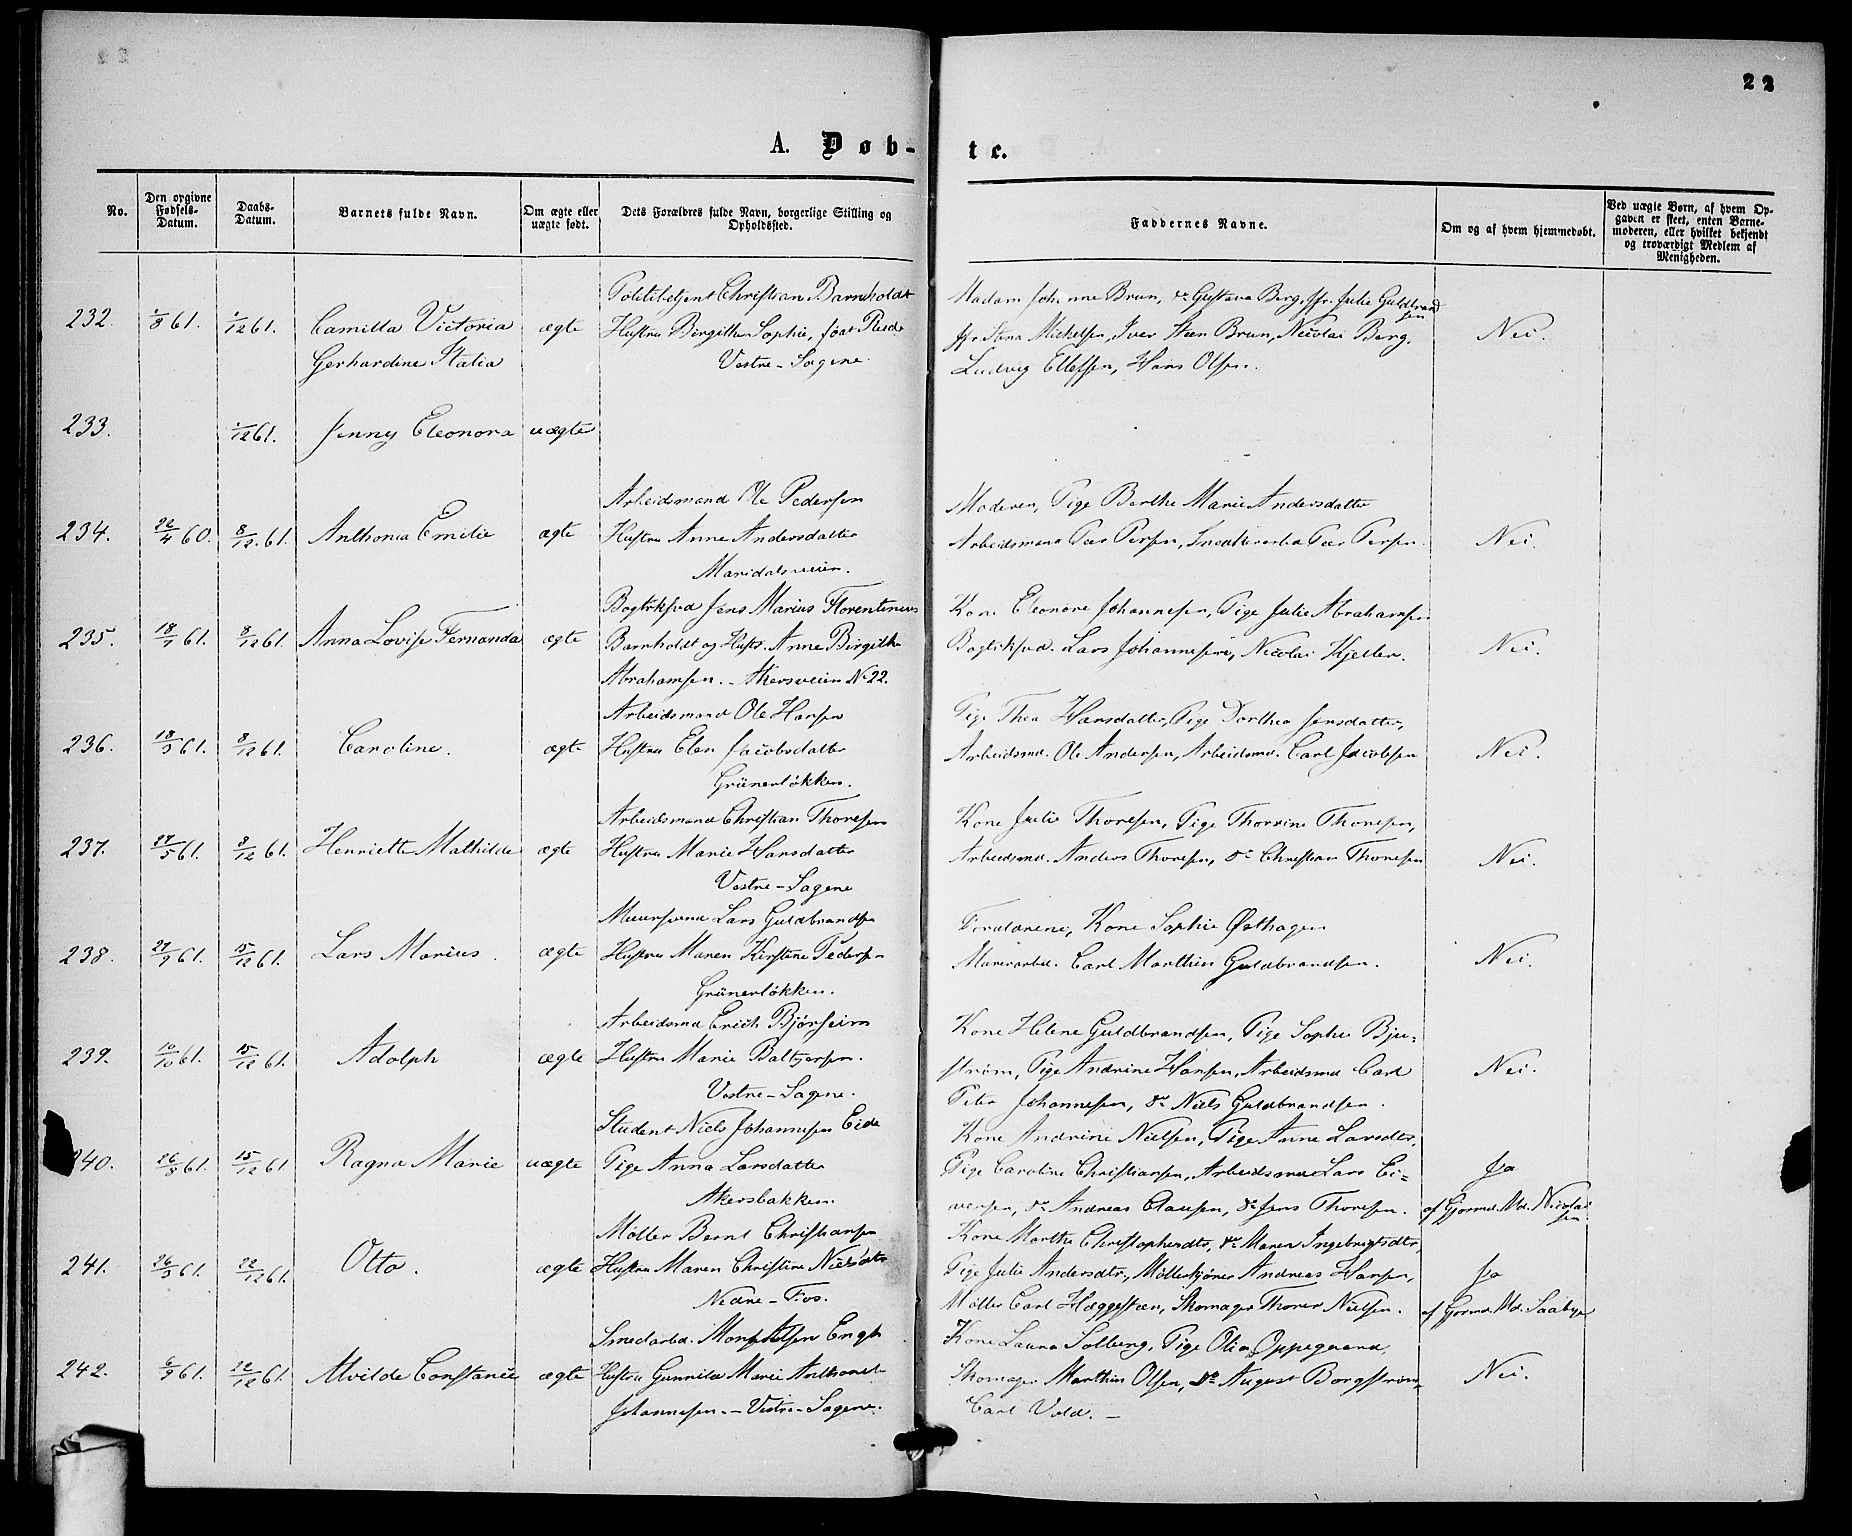 22
A. Døb-
te.
No.
Den opgivne Fødsels-Datum.
Daabs-Datum.
Barnets fulde Navn.
Om ægte eller uægte født.
Dets Forældres fulde Navn, borgerlige Stilling og Opholdssted.
Faddernes Navne.
Om og af hvem hjemmedøbt.
Ved uægte Børn, af hvem Opgaven er skeet, enten Barnemoderen, eller hvilket bekjendt og troværdigt Medlem af Menigheden.
Politibetjent Christian Barnholdt
Madam Johanne Brun, do Gustava Berg, Jfr. Julie Guldbrandsen
232. 1/8 61. 1/12 61. Camilla Victoria ægte Hustru Birgitha Sophie, født
Michelsen, Iver Steen Brun, Nicolai Berg, Nei.
Gerhardine Statia Vestre-Sagene.
Ludvig Ellefsen, Hans Olsen.
233. 1/12 61. Jenny Eleonora uægte
Arbeidsmand Ole Pedersen
Moderen, Pige Berthe Marie Andersdatter
234. 22/4 60. 8/12 61. Anthonia Emilie ægte Hustru Anne Andersdatter
Arbeidsmand Peer Persen, Peer Persen. Nei.
Maridalsveien.
Bogtrksvd Jens Marius Florentinus
Kone Eleonore Johannesen, Pige Julie Abrahamsen
235. 18/7 61. 8/12 61. Anna Lovise Fernanda ægte Barnholdt og Hustr. Anne Birgithe
Bogtrksvd. Lars Johannesen, Nicolai Kjeller. Nei.
Abrahamsen. - Akersveien No 22.
Arbeidsmand Ole Hansen
Pige Thea Hansdatter, Pige Dorthea Jensdatter,
236. 18/9 61. 8/12 61. Caroline. ægte Hustru Elen Jacobsdatter
Arbeidsmd. Ole Andersen, Arbeidsmd. Carl Jacobsen Nei.
Grünerløkken.
Arbeidsmand Christian Thoresen
Kone Julie Thoresen, Pige Thorvine Thoresen,
237. 27/5 61. 8/12 61. Henriette Mathilde ægte Hustru Marie Hansdatter
Arbeidsmd. Anders Thoresen, do Christian Thoresen Nei.
Vestre-Sagene
Muursvend Lars Guldbrandsen
Forældrene, Kone Sophie Østhagen
238. 27/9 61. 15/12 61. Lars Marius. ægte Hustru Maren Kirstine Pedersen
Murerarbd. Carl Marthin Guldbrandsen. Nei.
Grünerløkken.
Arbeidsmd Erich Bjørseim
Kone Helene Guldbrandsen, Pige Sophie Bju-
239. 10/10 61. 15/12 61. Adolph ægte Hustru Marie Baltzersen.
strøm, Pige Andrine Hansen, Arbeidsmd Carl Nei.
Vestre-Sagene.
Peter Johannesen, do Niels Guldbrandsen.
Student Niels Johannesen Eide
Kone Andrine Nielsen, Pige Anne Larsdtr,
240. 26/8 61. 15/12 61 Ragna Marie uægte Pige Anna Larsdatter
Pige Caroline Christiansen, Arbeidsmd Lars Ei- Ja
Akersbakken.
versen, do Andreas Clausen, do Jens Thoresen. af Gjormd. Md. Nicolaisen.
Møller Bernt Christiansen
Kone Marthe Christophersdtr, do Maren Ingebrigtsdtr,
241. 26/9 61. 22/12 61. Otto. ægte Hustru Maren Christine Nielsdtr
Pige Julie Andersdtr, Møllerkjører Andreas Hansen, Ja
Nedre-Fos.
Møller Carl Hæggesteen, Skomager Thorer Nielsen. af Gjormd. Md. Saabye
Smedarbd. Engh
Kone Laura Solberg, Pige Olia Oppegaard,
242. 6/9 61. 22/12 61. Alvilde Constance ægte Hustru Gunnilda Marie
Skomager Marthin Olsen, do August Borgstrøm, Nei.
Johannesen. - Vestre-Sagene.
Carl Vold. -